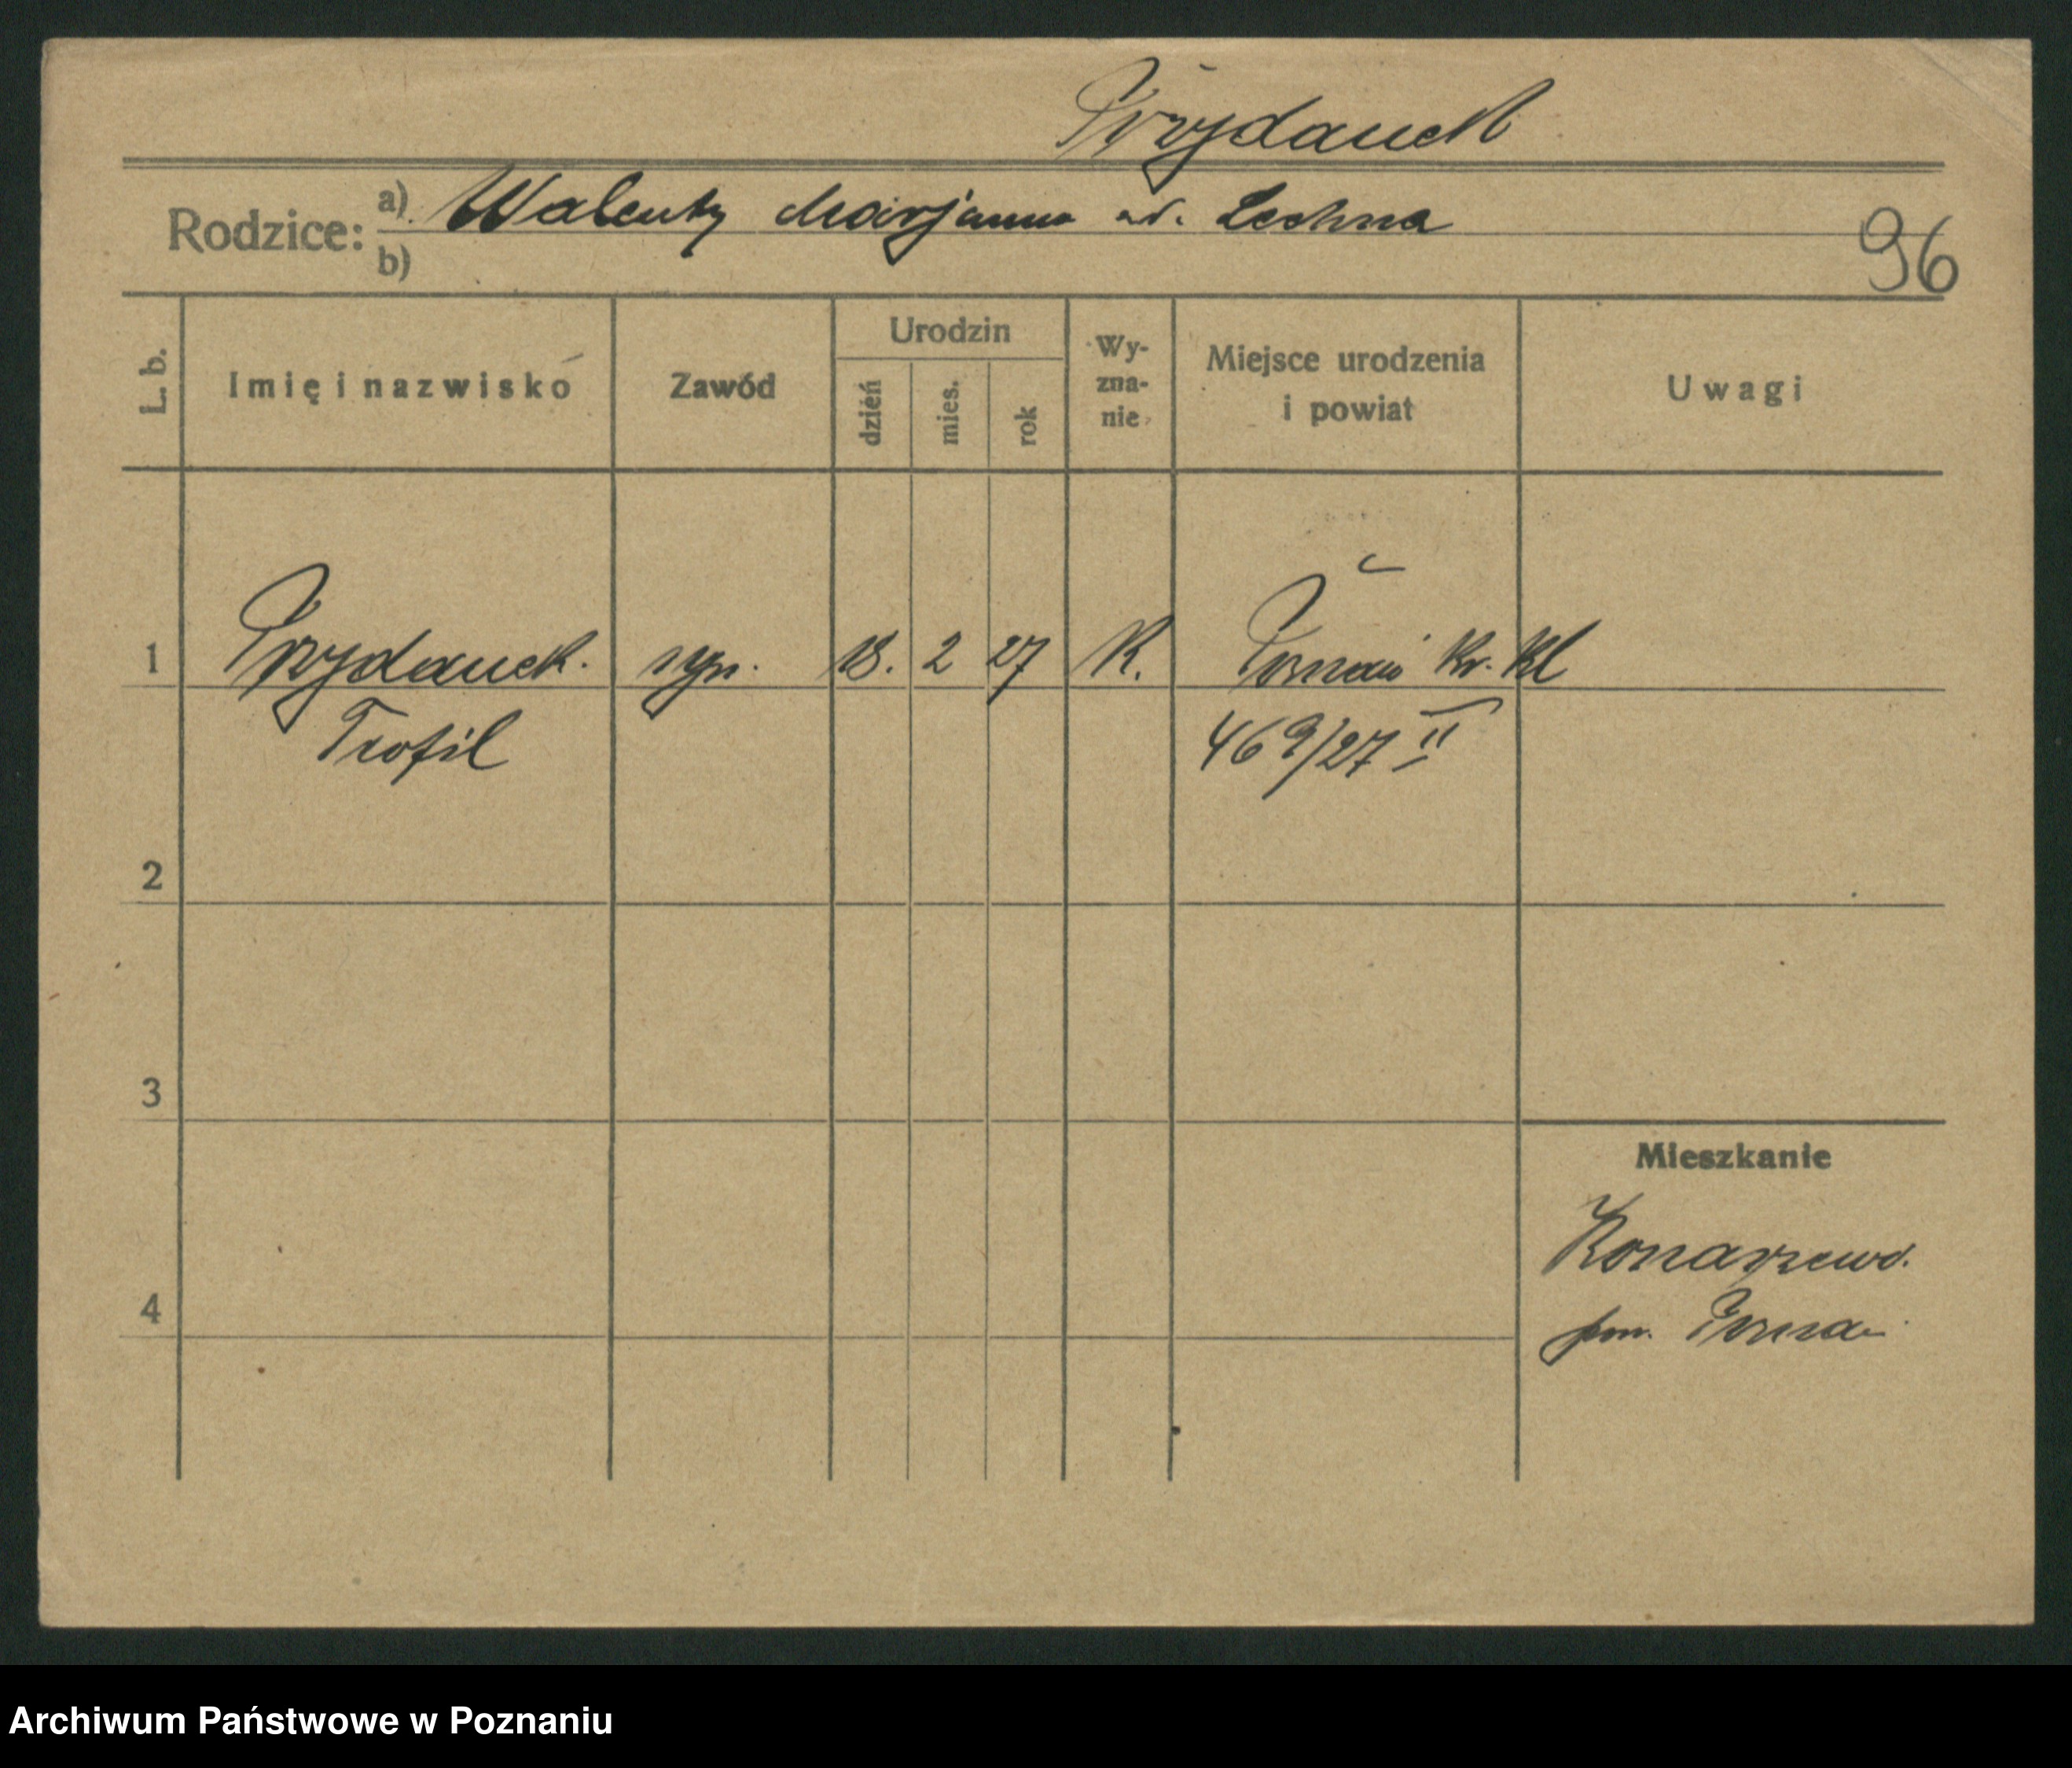 Przydanek
Rodzice: a) Walenty Marjanna ur. Lechna
b)
96
L. b. Imię i nazwisko Zawód Urodzin dzień mies. rok Wy-zna-nie Miejsce urodzenia i powiat Uwagi
1 Przydanek. syn. 18. 2 27 R. Poznań Kr. Kl
Teofil 469/27 II
2
3
Mieszkanie
Konarzewo.
4 pow. Pozna
Archiwum Państwowe w Poznaniu